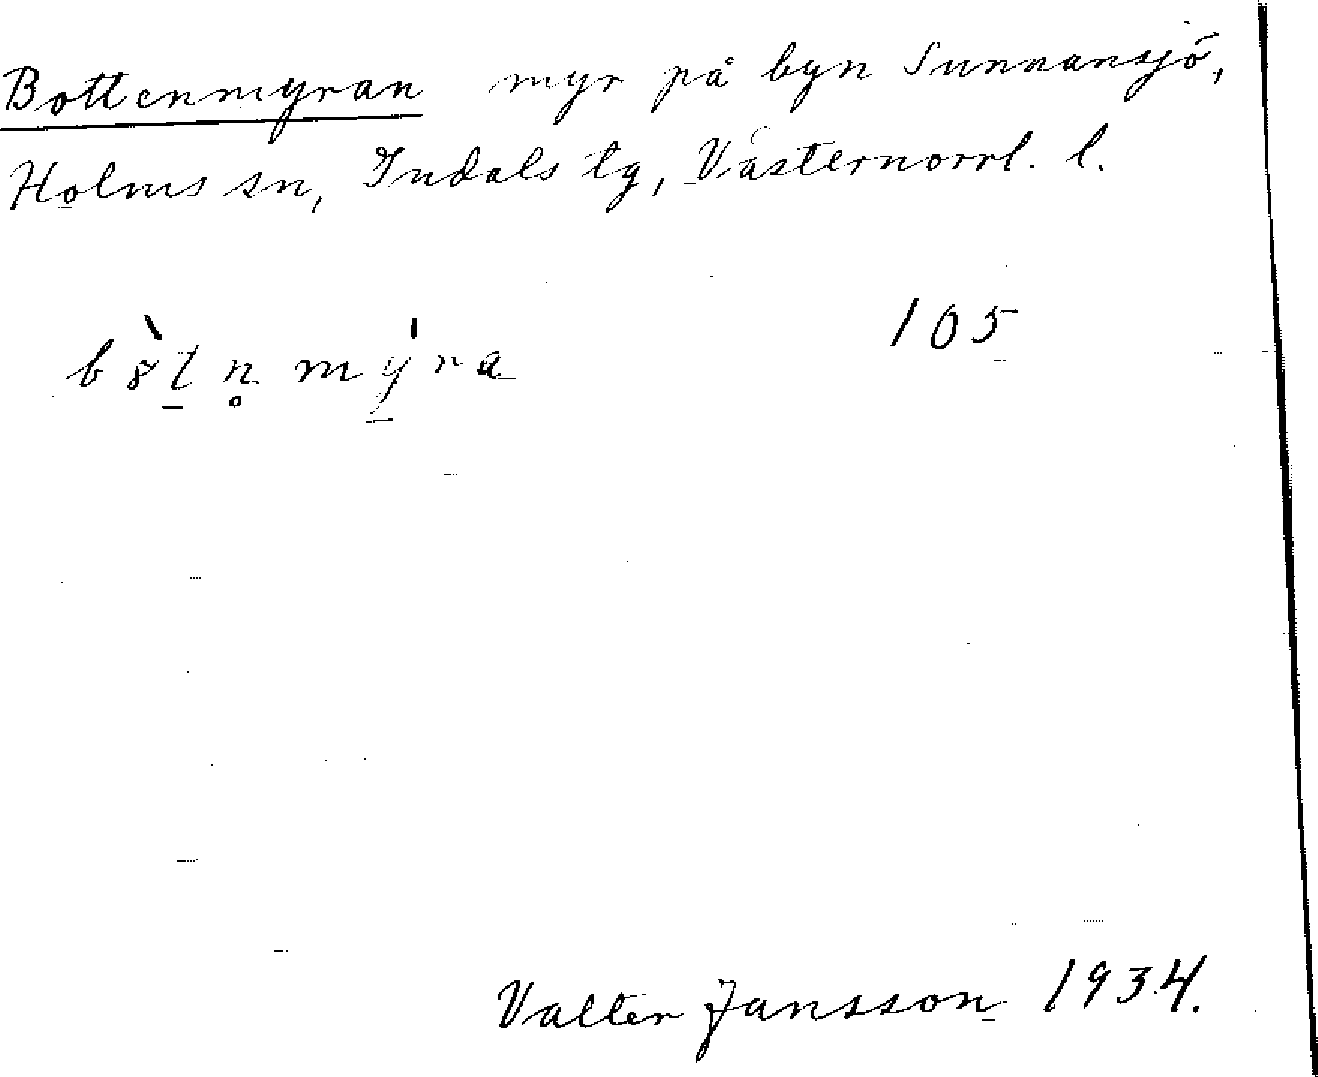 Bottenmyran myr på byn Sunnansjö,
Holms sn, Indals tg, Västernorrl. l.
105
Valter Jansson 1934.